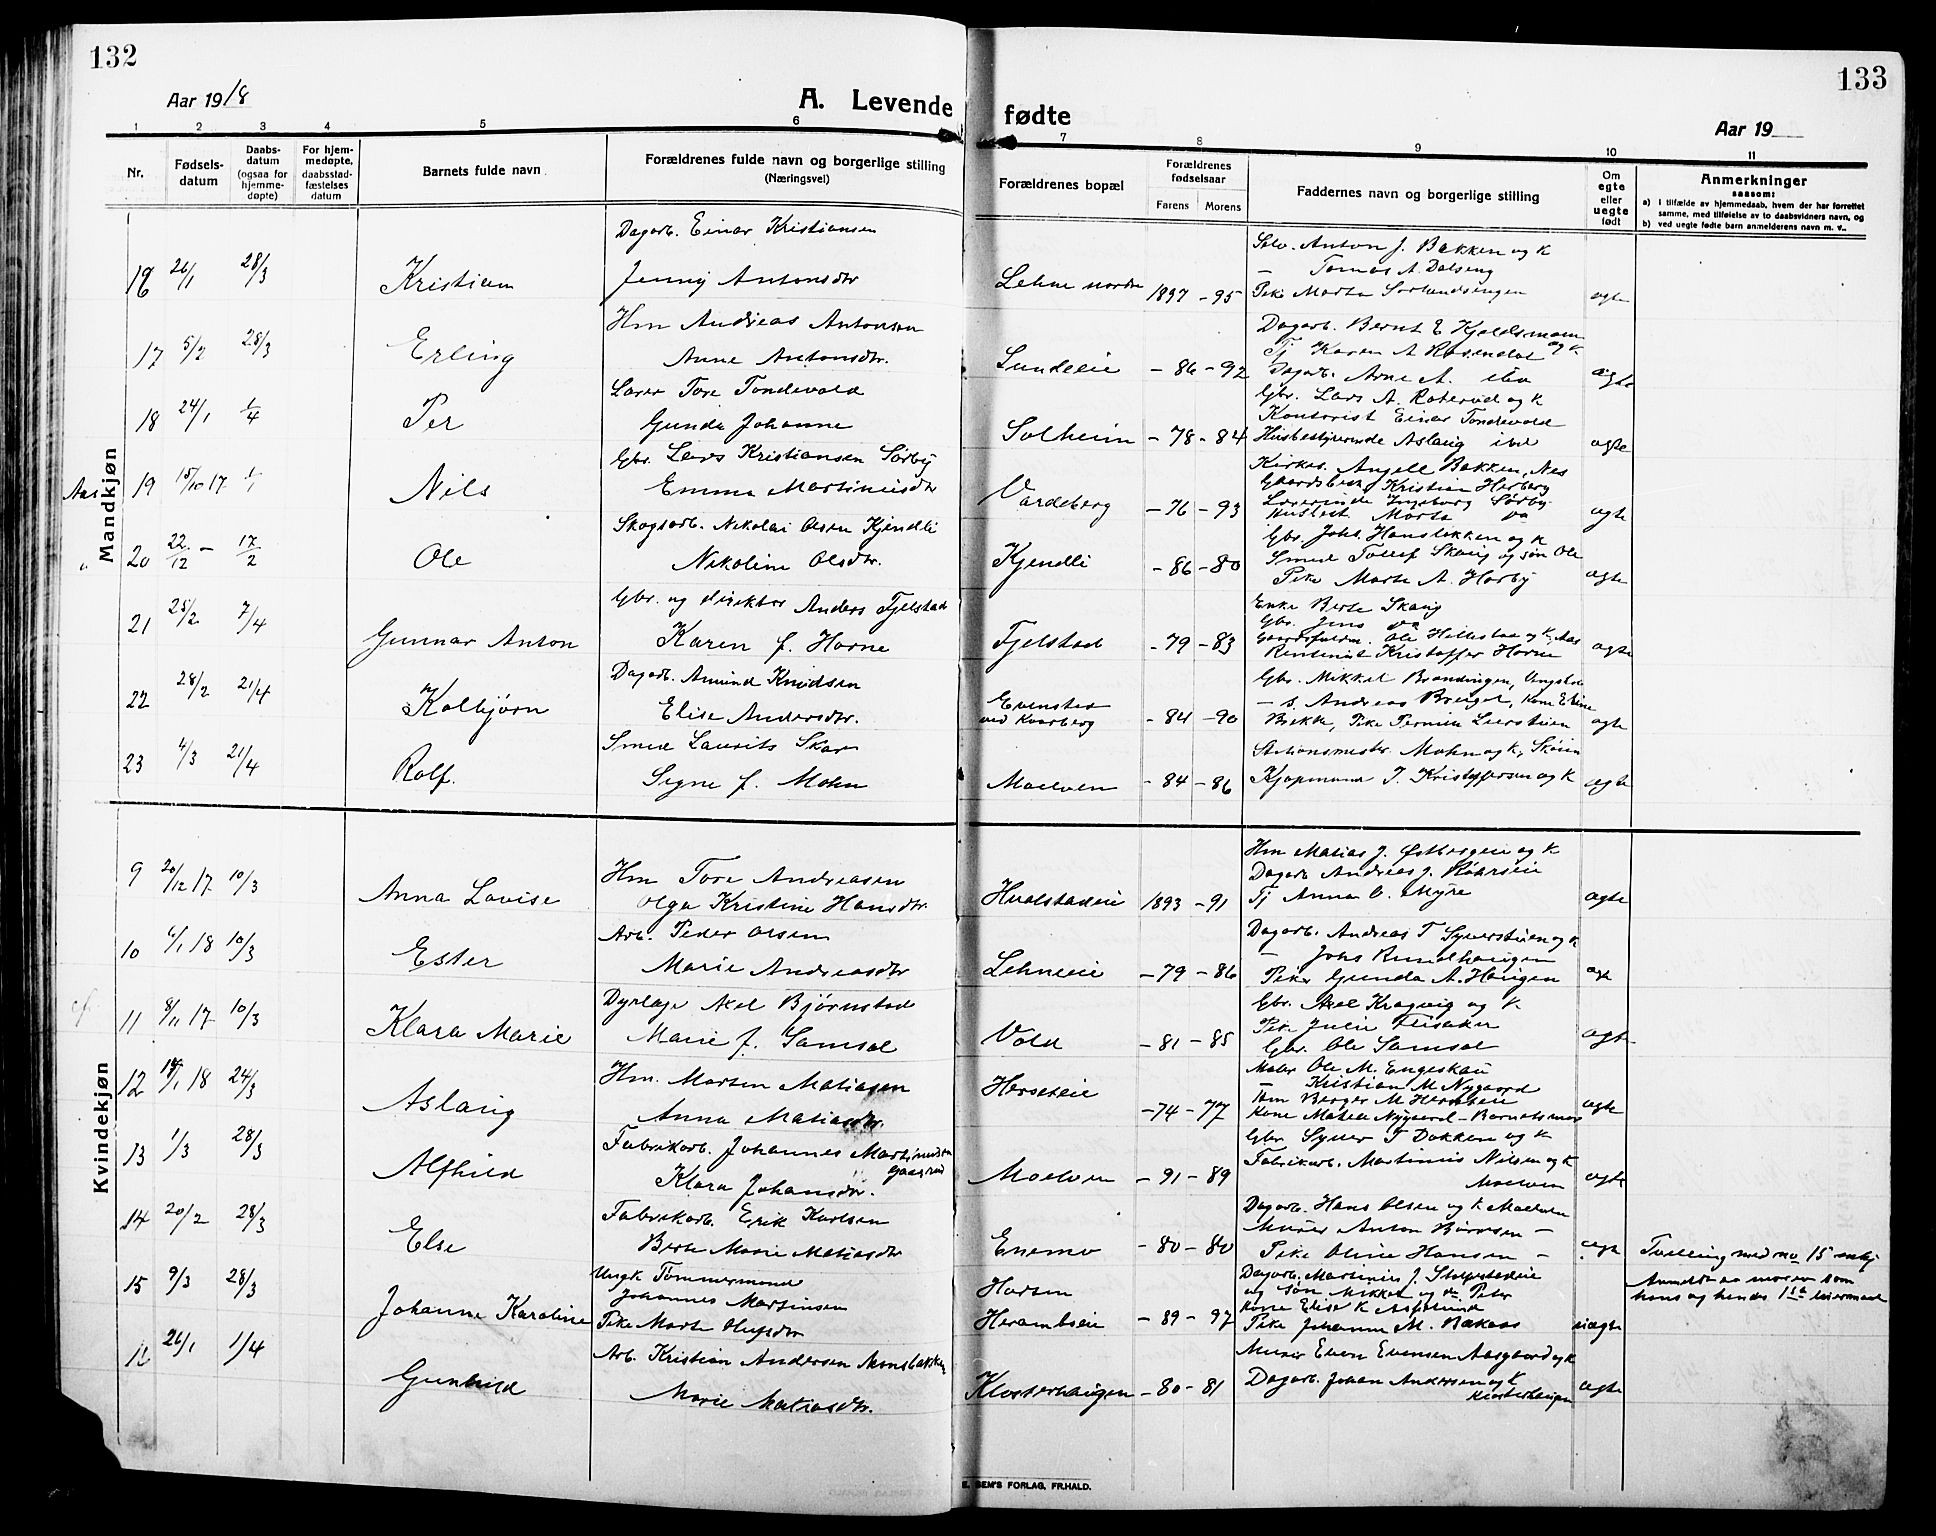 132
133
Aar 1918
A. Levende fødte
Aar 19
1 2 3 4 5 6 7 8 9 10 11
Nr.
Fødsels-
datum
Daabs-
datum
(ogsaa for
hjemme-
døpte)
For hjem-
medøpte,
daabsstad-
fæstelses
datum
Barnets fulde navn
Forældrenes fulde navn og borgerlige stilling
(Næringsvei)
Forældrenes bopæl
Forældrenes
fødselsaar
Farens Morens
Faddernes navn og borgerlige stilling
Om
egte
eller
uegte
født
Anmerkninger
saasom:
a) i tilfælde av hjemmedaab, hvem der har forrettet
samme, med tilføielse av to daabsvidners navn, og
b) ved uegte fødte barn anmelderens navn m. v..
Mandkjøn
16 26/1 28/3 Kristian
Dagarb. Einar Kristiansen
Jenny Antonsdtr
Lehne nordre 1897 - 95
Selv. Anton J. Bakken og k
— Tomas A. Dalseng
Pike Marta Sorlundsengen
egte
17 5/2 28/3 Erling
Hm Andreas Antonsen
Anne Antonsdtr.
Lundeeie - 86 - 92
Dagarb. Bernt E Kjeldsmoen og k.
Tj Karen A Rosendal
Dagarb. Arne A. ibid
egte
18 24/1 1/4 Per
Lærer Tore Tondevold
Gunda Johanne
Solheim - 78 - 84
Gbr. Lars A. Roterud og k
Kontorist Einar Tondevold
Husbestyrerinde Aslaug ibid
egte
19 15/10 17 1/1 Nils
Gbr. Lars Kristiansen Sørby
Emma Martiniusdtr
Vardeberg - 76 - 93
Kirkes. Angell Bakken, Nes
Gaardsbest. Kristian Herberg
Lærerinde Ingeborg Sørby
Husbest. Marta do
egte
20 22/12 - 17/2 Ole
Skogsarb. Nikolai Olsen Kjendli
Nikoline Olsdtr.
Kjendli - 86 - 80
Gbr. Johs. Hansløkken og k
Smed Tollef Skaug og søn Ole
Pike Marte A. Horby
egte
21 25/2 7/4 Gunnar Anton
Gbr. og direktør Anders Fjelstad
Karen f. Horne
Fjelstad - 79 - 83
Enke Berte Skaug
Gbr. Jens do
Gaardsfuldm. Ole Hillestad og k. Aas
Rentenist Kristoffer Horne
egte
22 28/2 21/4 Kolbjørn
Dagarb. Amund Knudsen
Elise Andersdtr.
Evenstad
ved Kvarberg - 84 - 90
Gbr. Mikkel Brandengen,
— s. Andreas Kone Eline
Bekk, Pike Pernille Leerstuen
egte
23 4/3 21/4 Rolf.
Smed Laurits Skar
Signe f. Mohn
Moelven - 84 - 86
Stationsmester Mohn og k, Skøien
Kjøpmand J. Kristoffersen og k
egte
Kvindekjøn
9 20/12 17 10/3 Anna Lovise
Hm Tore Andreasen
Olga Kristine Hansdtr
Hvalstadeie 1893 - 91
Hm Matias J. Østbergeie og k
Dagarb Andreas J.
Tj Anna O. Myre
egte
10 6/1 18 10/3 Ester
Arb. Peder Olsen
Marie Andreasdtr
Lehneeie - 79 - 86
Dagarb. Andreas T Syverstuen og k
— Johs Rundhaugen
Pike Gunda A. Haugen
egte
11 8/11 17 10/3 Klara Marie
Dyrlæge Axel Bjørnstad
Marie f. Samsal
Vold - 81 - 85
Gbr. Axel Kragvig og k
Pike Julie Flisaker
Gbr. Ole Samsal
egte
12 1/1 18 24/3 Aslaug
Hm. Morten Matiasen
Anna Matiasdtr.
Herseteie - 74 - 77
Maler Ole M. Engeskau
— Kristian M. Nygaard
Tøm Berger M Herseteie
Kone Matea Nygaard - Barnets mor
egte
13 1/3 28/3 Alfhild
Fabrikarb. Johannes Martinusen
Klara Johansdtr.
Moelven - 91 - 89
Gbr Syver T Dokken og k
Fabrikarb. Martinus Nilsen og k
Moelven
egte
14 20/2 28/3 Else
Fabrikarb. Erik Karlsen
Berte Marie Matiasdtr
Enemo - 80 - 80
Dagarb. Hans Olsen og k Moelven
Murer Anton Børresen —
Pike Oline Hansen —
egte
Tvilling med no 15
15 9/3 28/3 Johanne Karoline
Ungk Tømmermand
Johannes Martinsen
Pike Marte Olufsdtr
Horsen
Herambseie - 89 - 97
Dagarb. Martinius J. Stolpestadeie
og søn Mikkel og do Peter
Kone Elise K Asplund
Pike Johanne M. Bakaas
uegte
Anmeldt av moren som
hans og hendes 1ste leiermaal
16 26/1 1/4 Gunhild
Arb. Kristian Andersen
Marie Matiasdtr.
Klosterhaugen - 80 - 81
Murer Even Evensen Aasgaard og k
Dagarb. Johan Andersen og k
Klosterhaugen
egte
E. SEM'S FORLAG, FR.HALD.